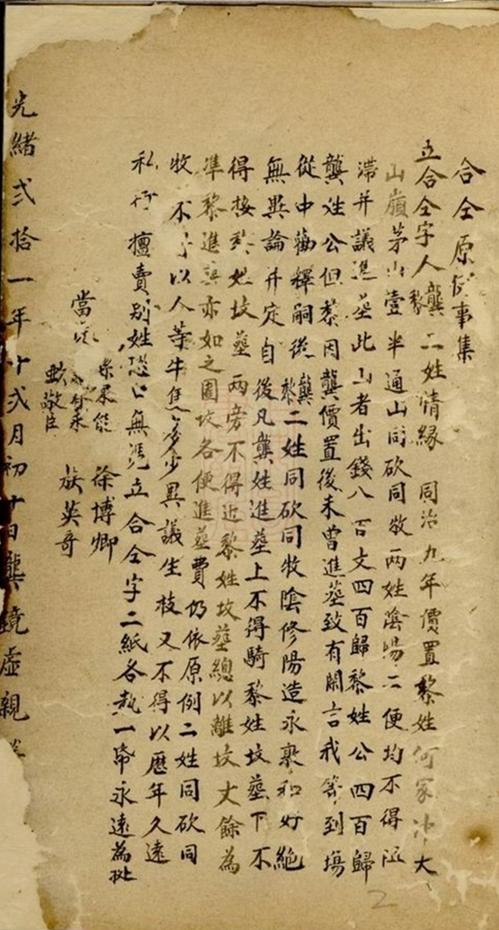 合仝原伩事集
立合仝字人龔黎二姓情緣同治九年價置黎姓何家冲大
山嶺茅山壹半通山同砍同牧兩姓陰陽二便均不得阻
滯并議進塟此山者出錢八百文四百歸黎姓公四百歸
龔姓公但黎因龔價置後未曾進塟致有閑言我等到塲
從中勸釋嗣後龔黎二姓同砍同牧陰修陽造永敦和好絶
無異論并定自後凡龔姓進塟上不得騎黎姓坟塟下不
得接黎姓坟塟兩旁不得近黎姓坟塟總以離坟丈餘為
準黎進塟亦如之圍坟各便進塟費仍依原例二姓同砍同
牧不予以人等牛隻多少異議生枝又不得以歷年久遠
私行擅賣別姓恐口無凭立合仝字二紙各執一帋永遠為批
當 徐博卿
敬臣 族英哥
光緒弍拾一年十弍月初十日龔鏡虛親
2